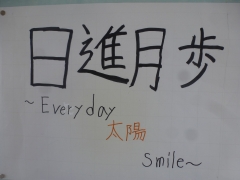 日進月歩
~Everyday
太陽
smile~